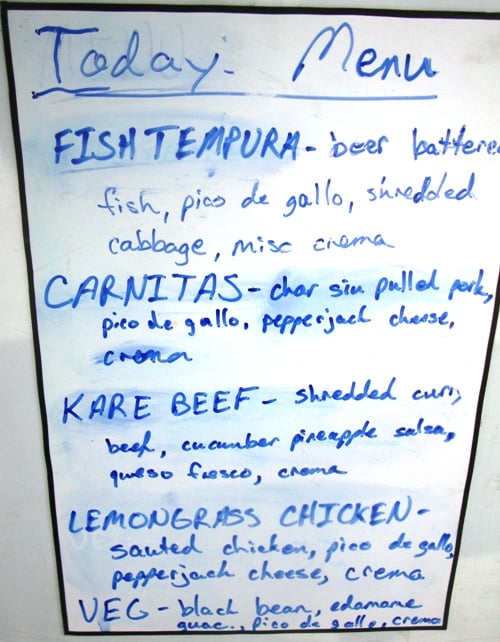 Today. Menu
FISH TEMPURA - beer battered
fish, pico de gallo, shredded
cabbage, miso crema
CARNITAS - char siu pulled pork,
pico de gallo, pepperjack cheese,
crema
KARE BEEF - shredded curry
beef, cucumber pineapple salsa,
queso fresco, crema
LEMONGRASS CHICKEN -
sauted chicken, pico de gallo,
pepperjack cheese, crema
VEG - black bean, edamame
guac., pico de gallo, crema